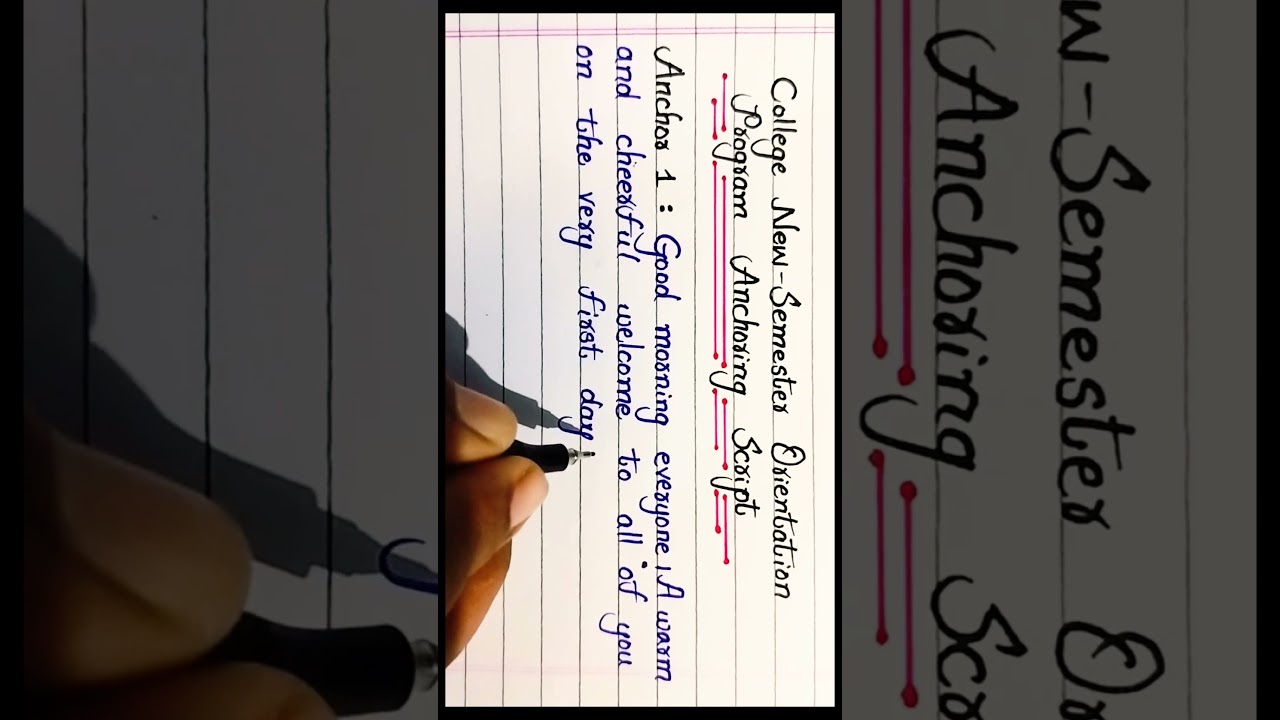 College New-Semester Orientation
Program Anchoring Script
Anchor 1 : Good morning everyone, A warm
and cheerful welcome to all of you
on the very first day
w-Semester Or
Anchoring Scr